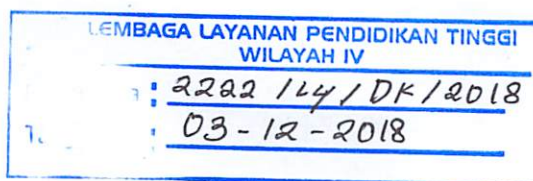 LEMBAGA LAYANAN PENDIDIKAN TINGGI
WILAYAH IV
: 2222 / L4 / DK / 2018
: 03 - 12 - 2018